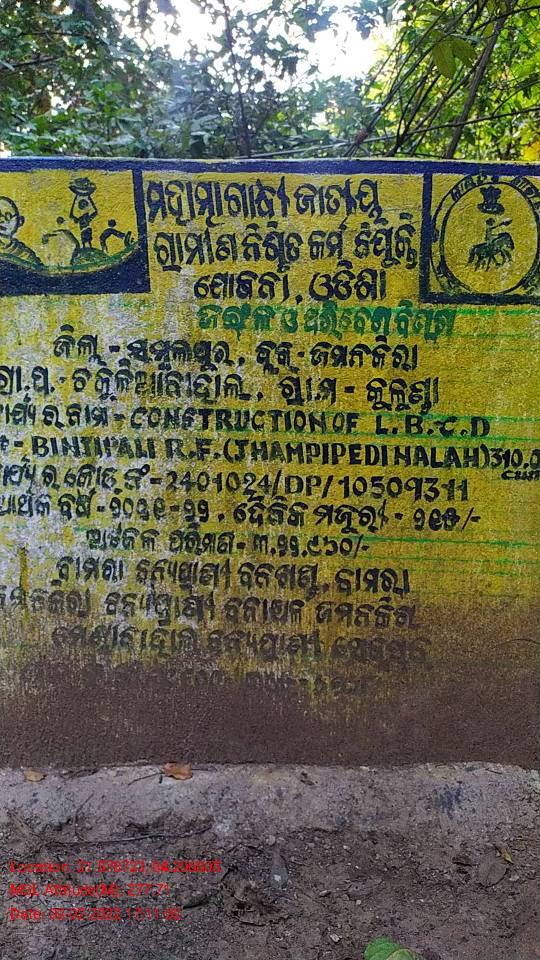 ମହାତ୍ମାଗାନ୍ଧୀ ଜାତୀୟ
ଗ୍ରାମୀଣ ନିଶ୍ଚିତ କର୍ମ ନିଯୁକ୍ତି
ଯୋଜନା, ଓଡିଶା
ଜଙ୍ଗଲ ଓ ପରିବେଶ ବିଭାଗ
ଜିଲା - ସମ୍ବଲପୁର, ବ୍ଲକ - ଜମନକିରା
ଗ୍ରା.ପ. - ଗ୍ରାମ - କୁଳୁଣ୍ଡା
ର ନାମ - CONSTRUCTION OF L.B.C.D
- BINTIPALI R.F.(JHAMPIPEDI NALAH) 310.0
cum
ର କୋଡ୍ ନଂ - 2401024/DP/10509311
ଆର୍ଥିକ ବର୍ଷ - ୨୦୨୧-୨୨, ଦୈନିକ ମଜୁରୀ - ୨୧୫/-
ଅଟକଳ ପରିମାଣ - ୩,୨୨,୯୬୦/-
ବାମରା ବନ୍ୟପ୍ରାଣୀ ବନଖଣ୍ଡ, ବାମରା
ଜମନକିରା ବନ୍ୟପ୍ରାଣୀ ବନାଞ୍ଚଳ ଜମନକିରା
ବନ୍ୟପ୍ରାଣୀ
Location: 21.578727, 84.206605
MSL Altitude(M): 277.71
Date: 02-02-2022 17:11:02